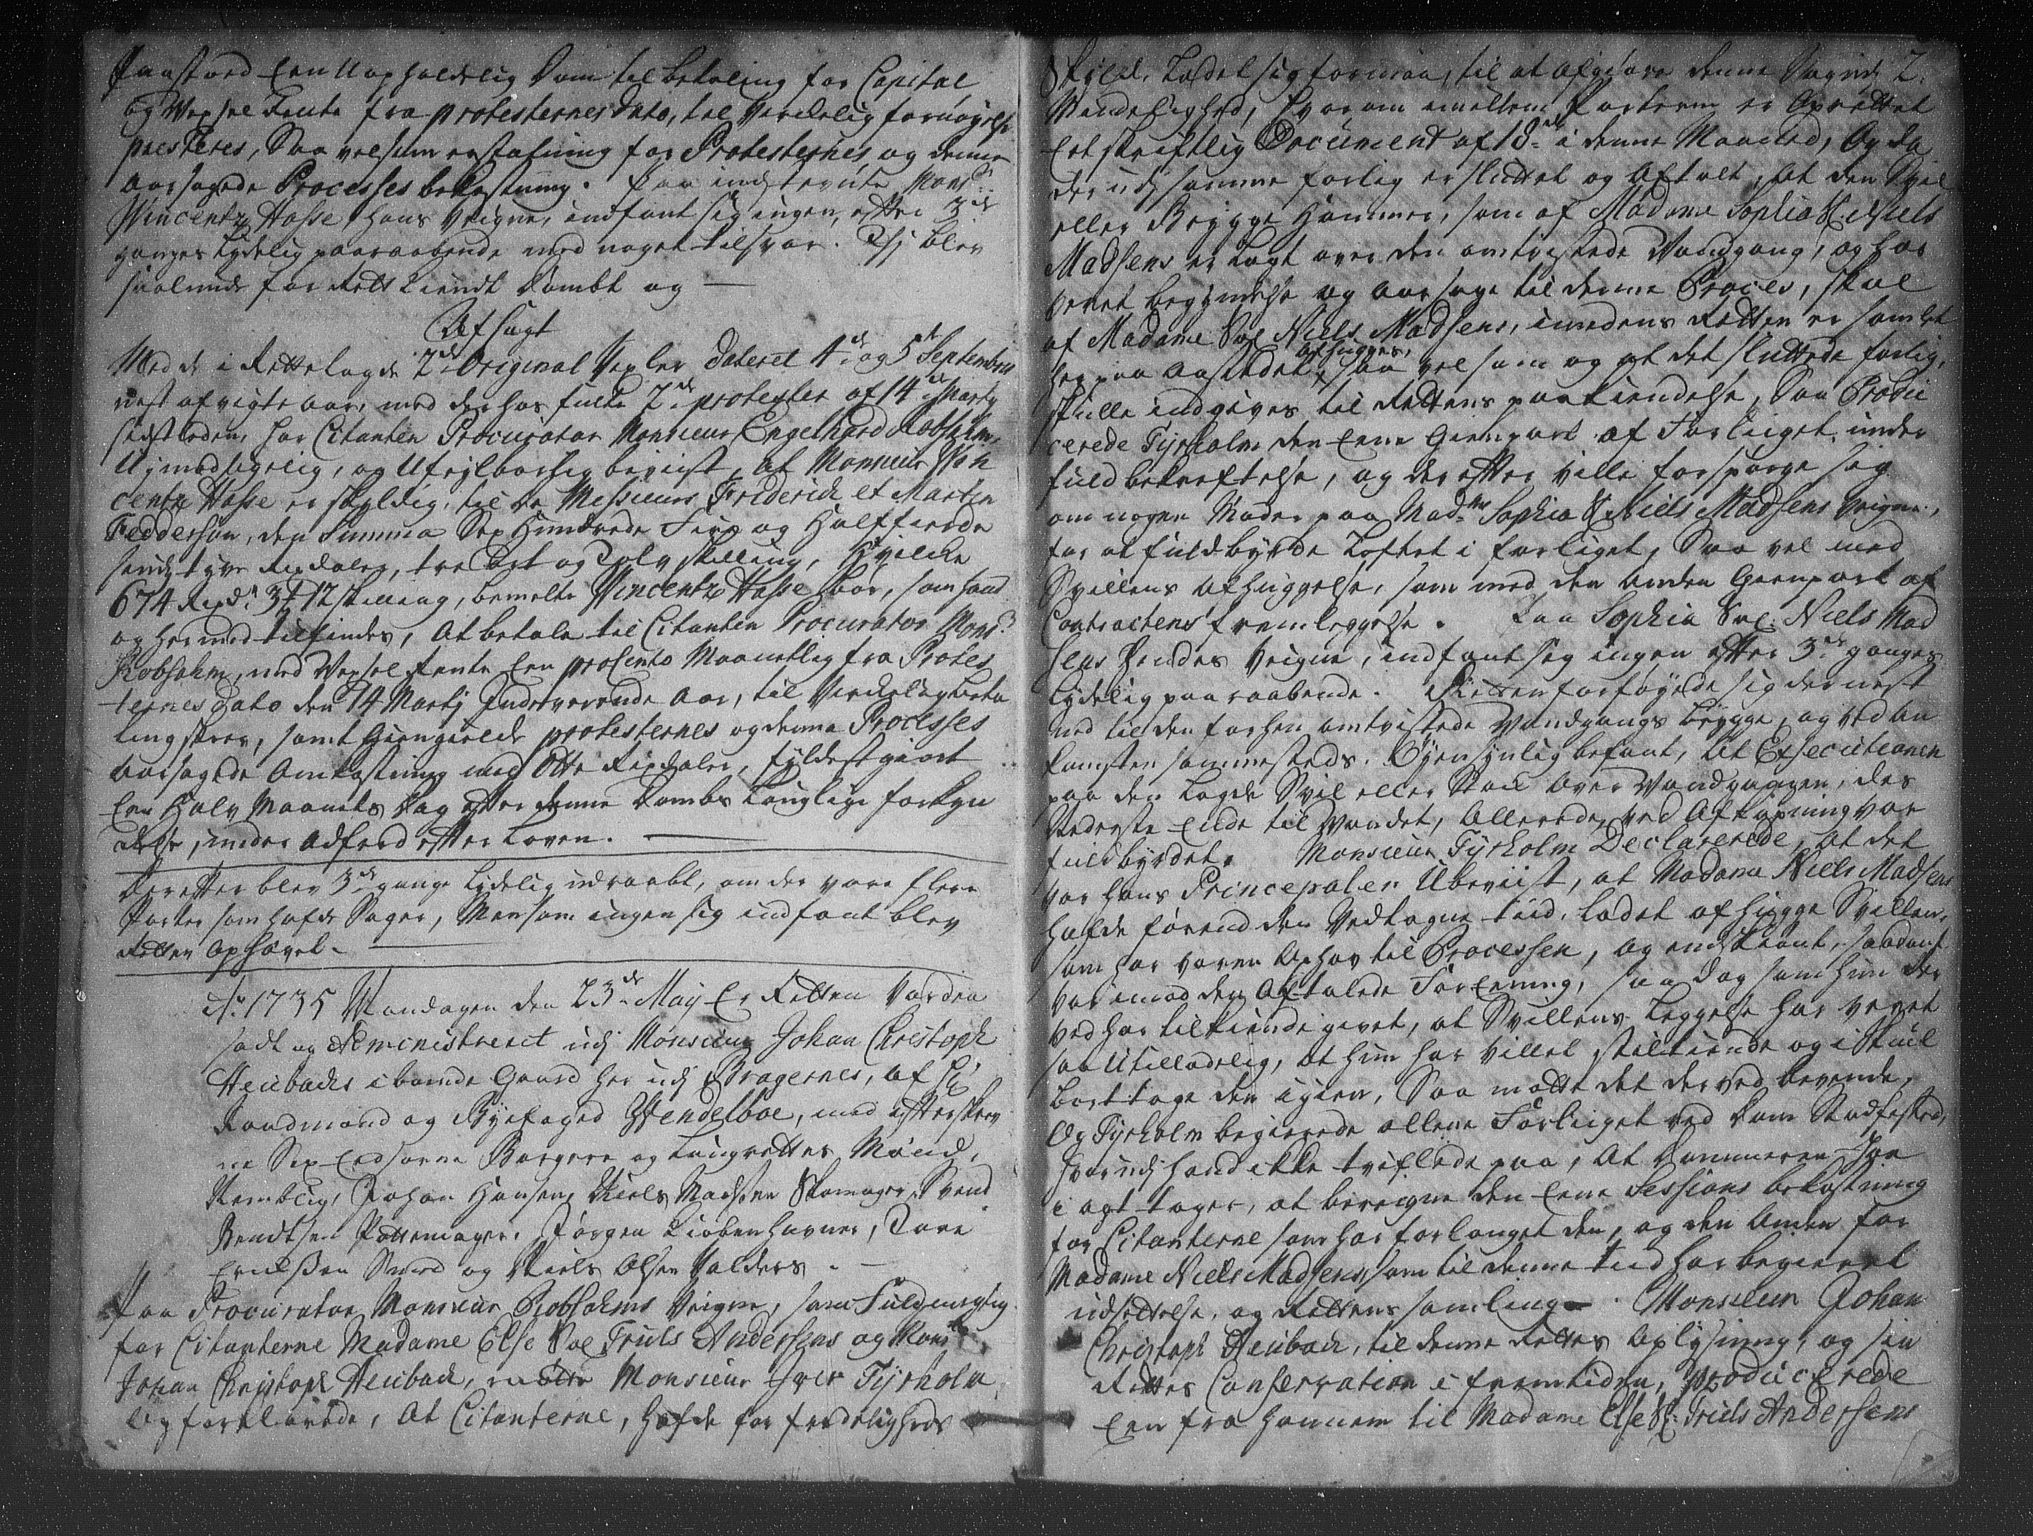 Paastoed een Uopholdelig Dom til betaling for Capital
og Vexel Rente fra protesternes dato, til Verkelig fornøyelse
præsteres, Saa velsom erstatning for Protesternes og denne
aarsagede Processes bekostning. Paa indstevnte Mons:r
Wincentz Hasse hans Veigne, indfant sig ingen, efter 3de
ganges lydelig paaraabende med noget tilsvar. Thj blev
saalunde for Rett kiendt Dømbt og —
Afsagt
Med de i Rettelagde 2de Original Vexler dateret 4de og 5te Septembris
nest afvigte aar, med derhos fulte 2de protester af 14de Marty
sidstleden, har Citanten Procurator Monsieur Engelhard Robsahm,
Uimodsigelig, og Ufeylbarlig beviist, at Monsieur Win
centz Hasse er skyldig til de Messieurs Friderich et Martin
Feddersen, den Summa Sex Hundrede Fire og Halffierde
sindstyve Rixdaler, tre Ort og Tolv skilling, Hvilke
674 Rixdr 3 ort 12 skilling, bemelte Wincentz Hasse bør, som hand
og hermed tilfindes, At betale til Citanten Procurator Mons:r
Robsahm, med Vexel Rente een procento Maanetlig fra Protes
ternes dato den 14 Martj Indeværende Aar, til Verkelig beta
ling skeer, samt Giengielde protesternes og denne Processes
aarsagede Omkostning med Otte Rixdaler, fyldestgiort
Een Halv Maanets dag efter denne Dombs Lauglige forkyn
delse, under Adferd efter Loven.
Derefter blev 3de gange lydelig udraabt, om der vare flere
Parter som hafde Sager, Men som ingen sig indfant blev
Retten Ophævet.
Ao 1735 Mandagen den 23de Maij Er Retten Vorden
sadt og Administreret udj Monsieur Johan Christoph
Heubachs iboende Gaard her udj Bragernes, af Sr
Raadmand og Byefoged Wendelboe, med efterskrev
ne Sex Eedsorne Borgere og Laugrettes Mænd,
Nemblig, Johan Hansen, Niels Madsen Skomager, Svend
Bendtsen Pottemager, Jørgen Kiøbenhavner, Tore
Erichsen Smed og Niels Olsen Valders.
Paa Procurator Monsieur Robsahms Veigne, som Fuldmegtig
for Citanterne Madame Else Sal Truls Andersens og Mons:r
Johan Christoph Heubach, mødte Monsieur Iver Tyrholm,
og forklarede, At Citanterne, hafde for fredeligheds
2.
Skyld, Ladet sig formaa, til at afgiøre denne Sag i
Mindelighed, hvorom imellem Parterne er Oprettet
Eet skriftlig Document af 18de i denne Maaned, Og da
der udj samme forlig er sluttet og Aftalt, at den Svil
eller Brygge Hammer, som af Madame Sophia Sl. Niels
Madsens er Lagt over den omtvistede Vandgang, og har
været begyndelse og aarsage til denne Proces, skal
af Madame Sal Niels Madsens, imedens Retten er samlet
her paa Aastedet afhugges, saa vel som og at det sluttede forlig,
skulle indgives til Rettens paakiendelse, Saa Produ
cerede Tyrholm den eene Gienpart af Forliiget, under
fuld bekreftelse, og derefter ville forspørge sig
om nogen Møder paa Madme Sophia Sl Niels Madsens Veigne,
for at fuldbyrde Løftet i forliget, Saa vel med
Svillens afhuggelse, som med den anden Gienpart af
Contractens fremleggelse. Paa Sophia Sal. Niels Mad
sens Hendes Veigne, indfant sig ingen efter 3de ganges
lydelig paaraabende. Retten forføyede sig dernest
ned til den forhen omtvistede Vandgangs Brygge, og ved An
komsten sammesteds, Øyensynlig befant, at Executionen
paa den Lagde Svil eller Stok over Vandgangen, des
Nederste Ende til Vandet, Allerede ved Afkapning var
fuldbyrdet. Monsieur Tyrholm Declarerede, at det
var hans Princepaler Ubeviist, at Madame Niels Madsens
hafde førend den Vedtagne tiid, Ladet afhugge Svillen,
som har været Ophav til Processen, og endskiønt, saadant
var imod den Aftalede Forening, saa dog som hun der
ved har tilkiendegivet, at Svillens Leggelse har veret
saa Utilladelig, at hun har villet stiltiende og i Skuel
borttage den igien, Saa motte det derved beroende,
Og Tyrholm begierede allene Forliiget ved Dom Stadfested,
hvorudj hand ikke tviflede paa, At Dommeren Jo
i agt tager, at beregne den Eene Sessions bekostning
for Citanterne som har forlanget den, og den Anden for
Madame Niels Madsens, som til denne tiid har begieret
udsettelse, og Rettens samling — Monsieur Johan
Christoph Heubach, til denne Rettes Oplysning, og sin
Rettes Conservation i fremtiden, producerede
Een fra hannem til Madame Else Sl. Truls Andersens